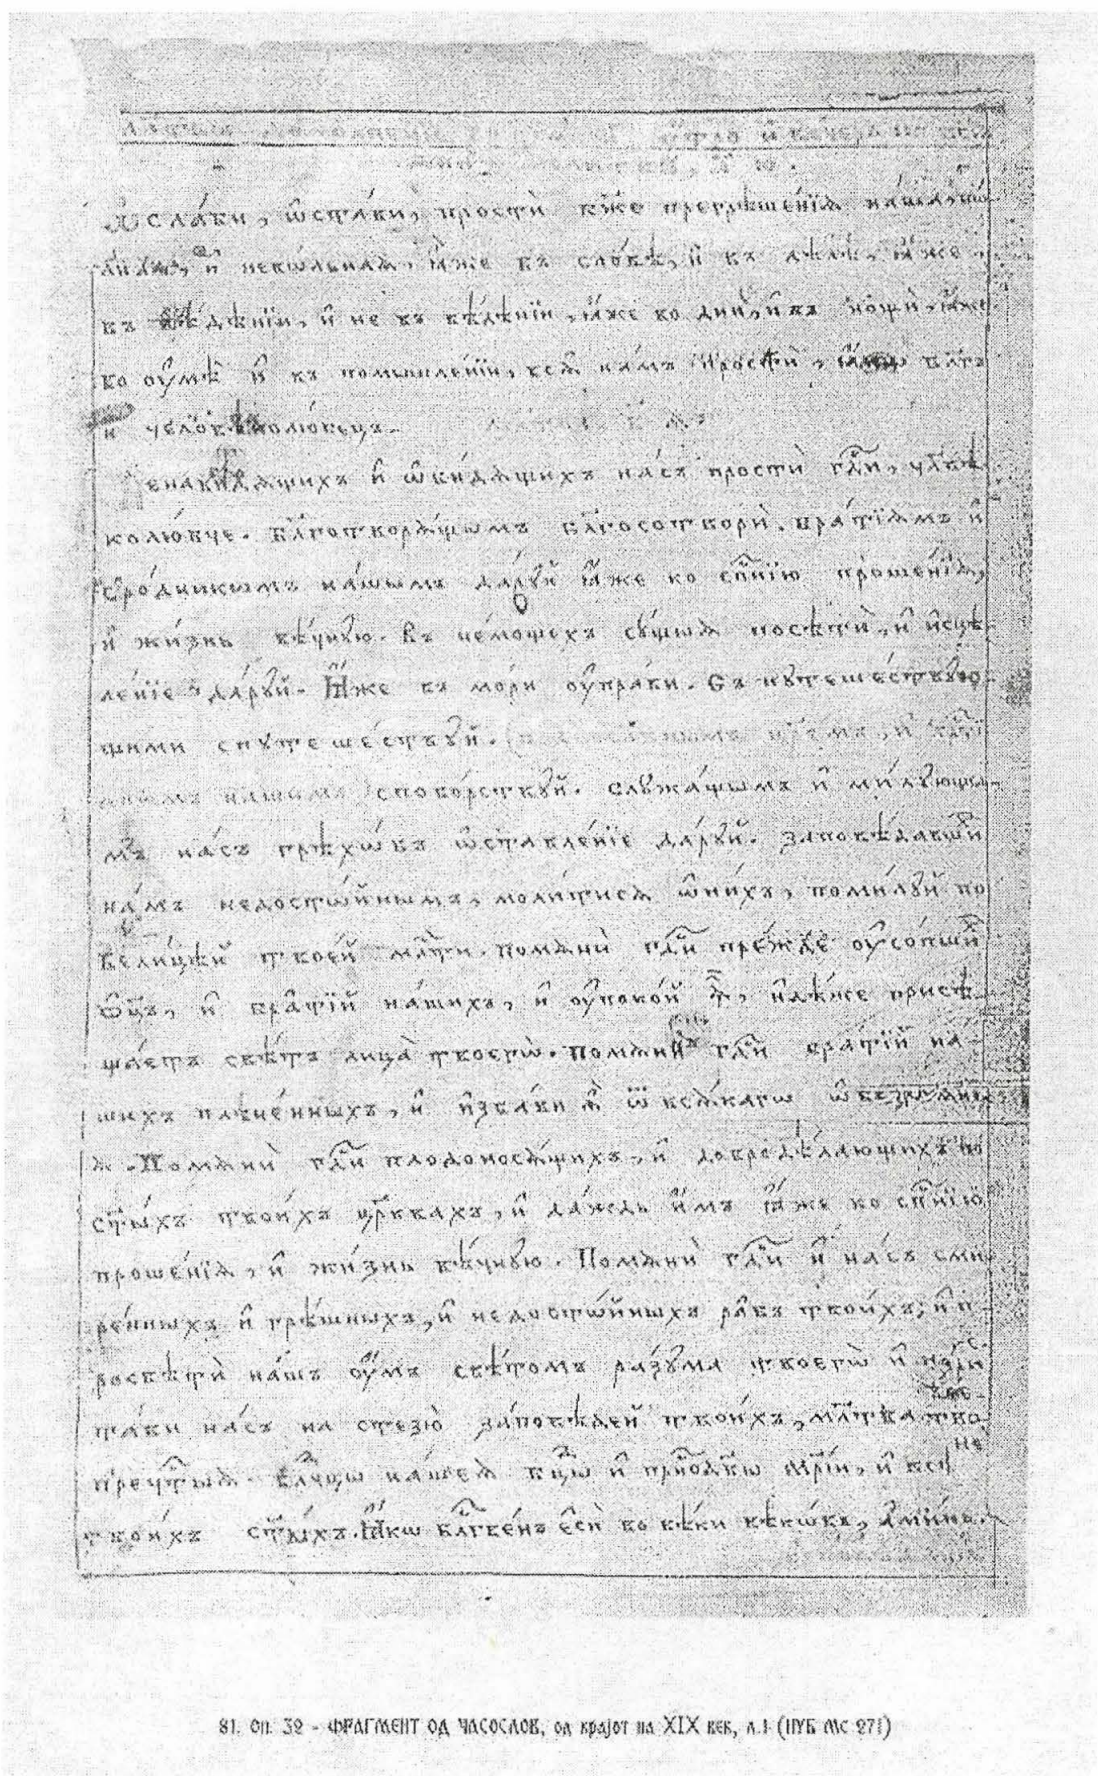 и вечера
Ѡслаби, ѡстави, прости бж҃е прегрѣшенїѧ наша, во
льнаѧ, и҆ невѡльнаѧ, ꙗ҆же въ словѣ, и҆ въ дѣлѣ, ꙗ҆же
въ вѣ́дѣнїи, и҆ не въ вѣ́дѣнїи, ꙗ҆же во дни, и҆ въ но́щи, ꙗ҆же
во ᲂу҆мѣ̀ и҆ въ помышле́нїи, всѧ̑ на́мъ простѝ, ꙗ҆́кѡ бл҃гъ
и человѣколю́бецъ.
Ненави́дѧщихъ и҆ ѡ҆би́дѧщихъ на́съ простѝ гдⷭ҇и, чл҃вѣ
колю́бче. Бл҃готворѧ́щымъ бл҃госотворѝ. бра́тїѧмъ и҆
сро́дникѡмъ на́шымъ да́рꙋй ꙗ҆́же ко сп҃нїю проше́нїѧ,
и҆ жи́знь вѣ́чнꙋю. Въ не́мощехъ сꙋ́щыѧ посѣтѝ, и҆ и҆сцѣ
ле́нїе да́рꙋй. И҆̀же въ мори ᲂу҆пра́ви. Съ пꙋтеше́ствꙋю
щими спꙋтеше́ствꙋй.
нашымъ спобо́рствꙋй. Слꙋжа́щымъ и҆ ми́лꙋющы
мъ на́съ грѣхѡ́въ ѡ҆ставле́нїе да́рꙋй. Заповѣ́давшїи
на́мъ недостѡ́йнымъ, моли́тисѧ ѡ҆ ни́хъ, поми́лꙋй по
вели́цѣй твое́й мл҃ти. Помѧнѝ гдⷭ҇и пре́жде ᲂу҆со́пшїѧ
ѻ҆ц҃ъ, и҆ бра́тїй на́шихъ, и҆ ᲂу҆поко́й ѧ҆̀, и҆дѣ́же присѣ
ща́етъ свѣ́тъ лица̀ твоегѡ̀. Помѧнѝ гдⷭ҇и бра́тїй на
шихъ плѣне́нныхъ, и҆ и҆зба́ви ѧ҆̀ ѿ всѧ́кагѡ ѡ҆бстоѧ́нї
ѧ. Помѧнѝ гдⷭ҇и плодоносѧ́щихъ, и҆ доброде́лающихъ во
ст҃ы́хъ твои́хъ цр҃квахъ, и҆ да́ждь и҆̀мъ ꙗ҆́же ко сп҃нїю
проше́нїѧ, и҆ жи́знь вѣ́чнꙋю. Помѧнѝ гдⷭ҇и и҆ на́съ сми
ре́нныхъ и҆ грѣ́шныхъ, и҆ недостѡ́йныхъ ра̑бъ твои́хъ, и҆ п
росвѣтѝ на́шъ ᲂу҆́мъ свѣ́томъ ра́зꙋма твоегѡ̀ и҆ нас
та́ви на́съ на стезю̀ за́повѣдей твои́хъ, мл҃твами
пречⷭ҇тыѧ влⷣчцы на́шеѧ бцⷣы и҆ приснодв҃ы мр҃їи, и҆ всѣ
твои́хъ ст҃ы́хъ. Ꙗ҆́кѡ бл҃гве́нъ є҆сѝ во вѣ́ки вѣкѡ́въ, а҆ми́нь.
81. Оп. 32 - ФРАГМЕНТ ОД ЧАСОСЛОВ, од крајот на XIX век, л.1 (НУБ Мс 271)